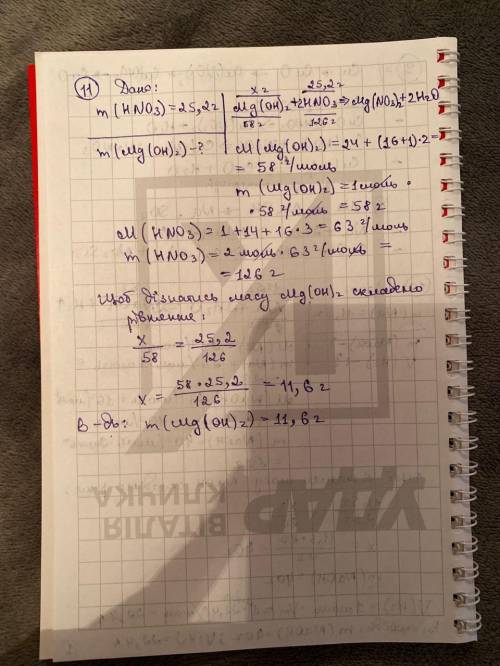 11 Дано:
m(HNO3)=25,2г
m(Mg(OH)2)-?
xг 25,2г
Mg(OH)2+2HNO3⇒Mg(NO3)2+2H2O
58г 126г
M(Mg(OH)2)=24+(16+1)·2=
=58 г/моль
m(Mg(OH)2)=1моль·
·58г/моль=58г
M(HNO3)=1+14+16·3=63г/моль
m(HNO3)=2моль·63г/моль=
=126г
Щоб дізнатись масу Mg(OH)2 складемо
рівняння:
x/58 = 25,2/126
x = 58·25,2/126 = 11,6г
В-дь: m(Mg(OH)2)=11,6г
УДАР
ВІТАЛІЯ
КЛИЧКА